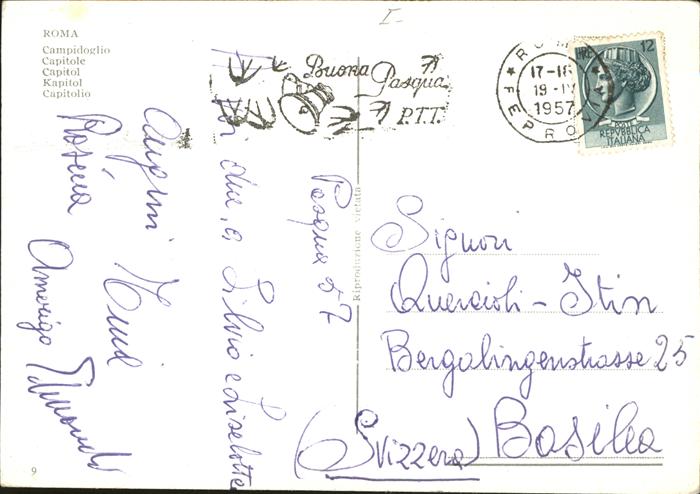 I-
ROMA
Campidoglio
Capitole
Capitol
Kapitol
Capitolio
Buona Pasqua
P.T.T.
ROMA
17-18
19-IV
1957
FERROVIA
LIRE 12
POSTE
REPVBBLICA
ITALIANA
Pasqua 57
A voi due, a Silvio e Liselotte
Auguri
Rosina
Amerigo
Riproduzione vietata
Signori
Quercioli - Itin
Bergalingenstrasse 25
Basilea
(Svizzera)
9